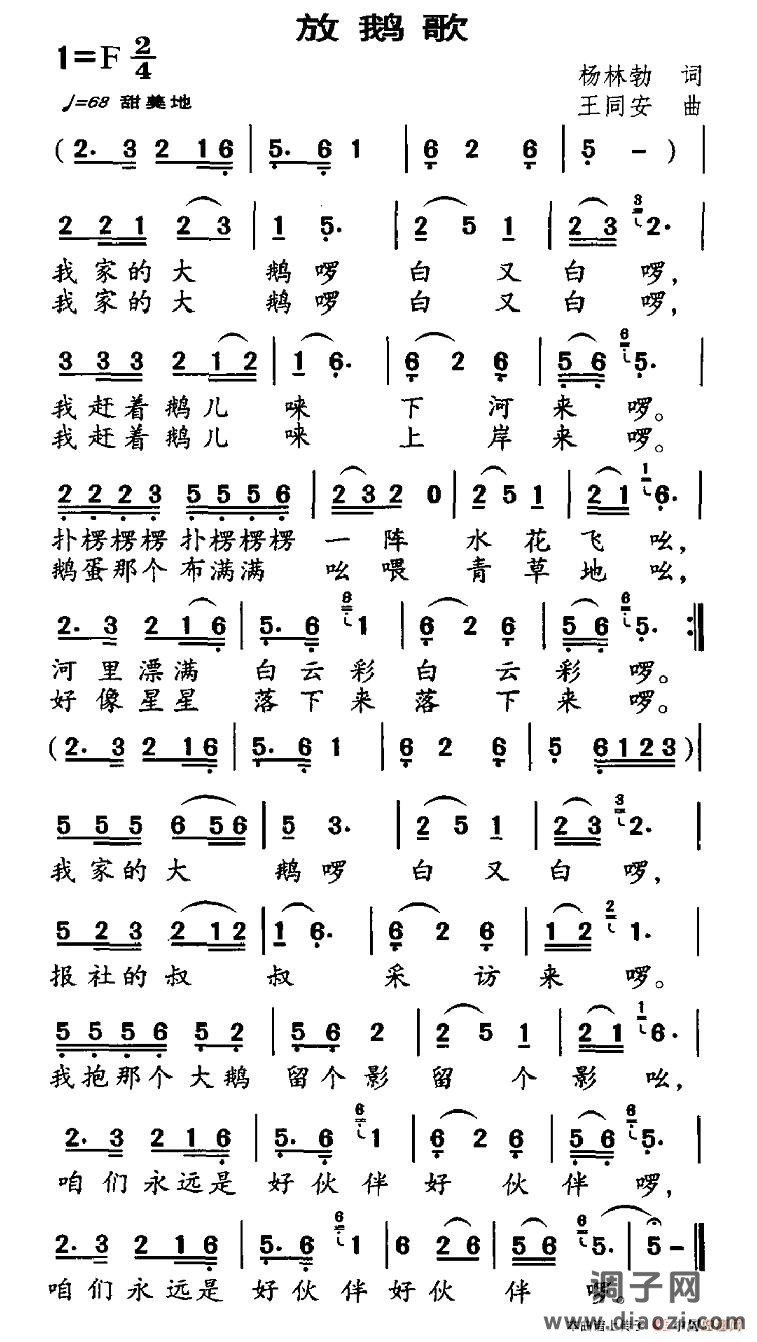 放鹅歌
1=F 2/4
杨林勃 词
♩=68 甜美地
王同安 曲
( 2. 3 2 1 6 | 5. 6 1 | 6 2 6 | 5 - ) |
2 2 1 2 3 | 1 5. | 2 5 1 | 2 3 3 2. |
我家的大 鹅啰 白又白啰,
我家的大 鹅啰 白又白啰,
3 3 3 2 1 2 | 1 6. | 6 2 6 | 5 6 6 5. |
我赶着鹅儿 唻 下河来啰。
我赶着鹅儿 唻 上岸来啰。
2 2 2 3 5 5 5 6 | 2 3 2 0 | 2 5 1 | 2 1 1 6. |
扑楞楞楞 扑楞楞楞 一阵 水花飞吆,
鹅蛋那个 布满满 吆喂 青草地吆,
2. 3 2 1 6 | 5. 6 6 1 | 6 2 6 | 5 6 6 5. :||
河里漂满 白云彩白云彩啰。
好像星星 落下来落下来啰。
( 2. 3 2 1 6 | 5. 6 1 | 6 2 6 | 5 6 1 2 3 ) |
5 5 5 6 5 6 | 5 3. | 2 5 1 | 2 3 3 2. |
我家的大 鹅啰 白又白啰,
5 2 3 2 1 2 | 1 6. | 6 2 6 | 1 2 2 1. |
报社的叔 叔 采访来啰。
5 5 5 6 5 2 | 5 6 2 | 2 5 1 | 2 1 1 6. |
我抱那个大鹅 留个影留个影吆,
2. 3 2 1 6 | 5. 6 6 1 | 6 2 2 | 5 6 6 5. |
咱们永远是 好伙伴好伙伴啰,
2. 3 2 1 6 | 5. 6 6 1 | 6 2 6 | 5 6 6 5. | 5 - ||
咱们永远是 好伙伴好伙伴啰。
调子网
www.diaozi.com